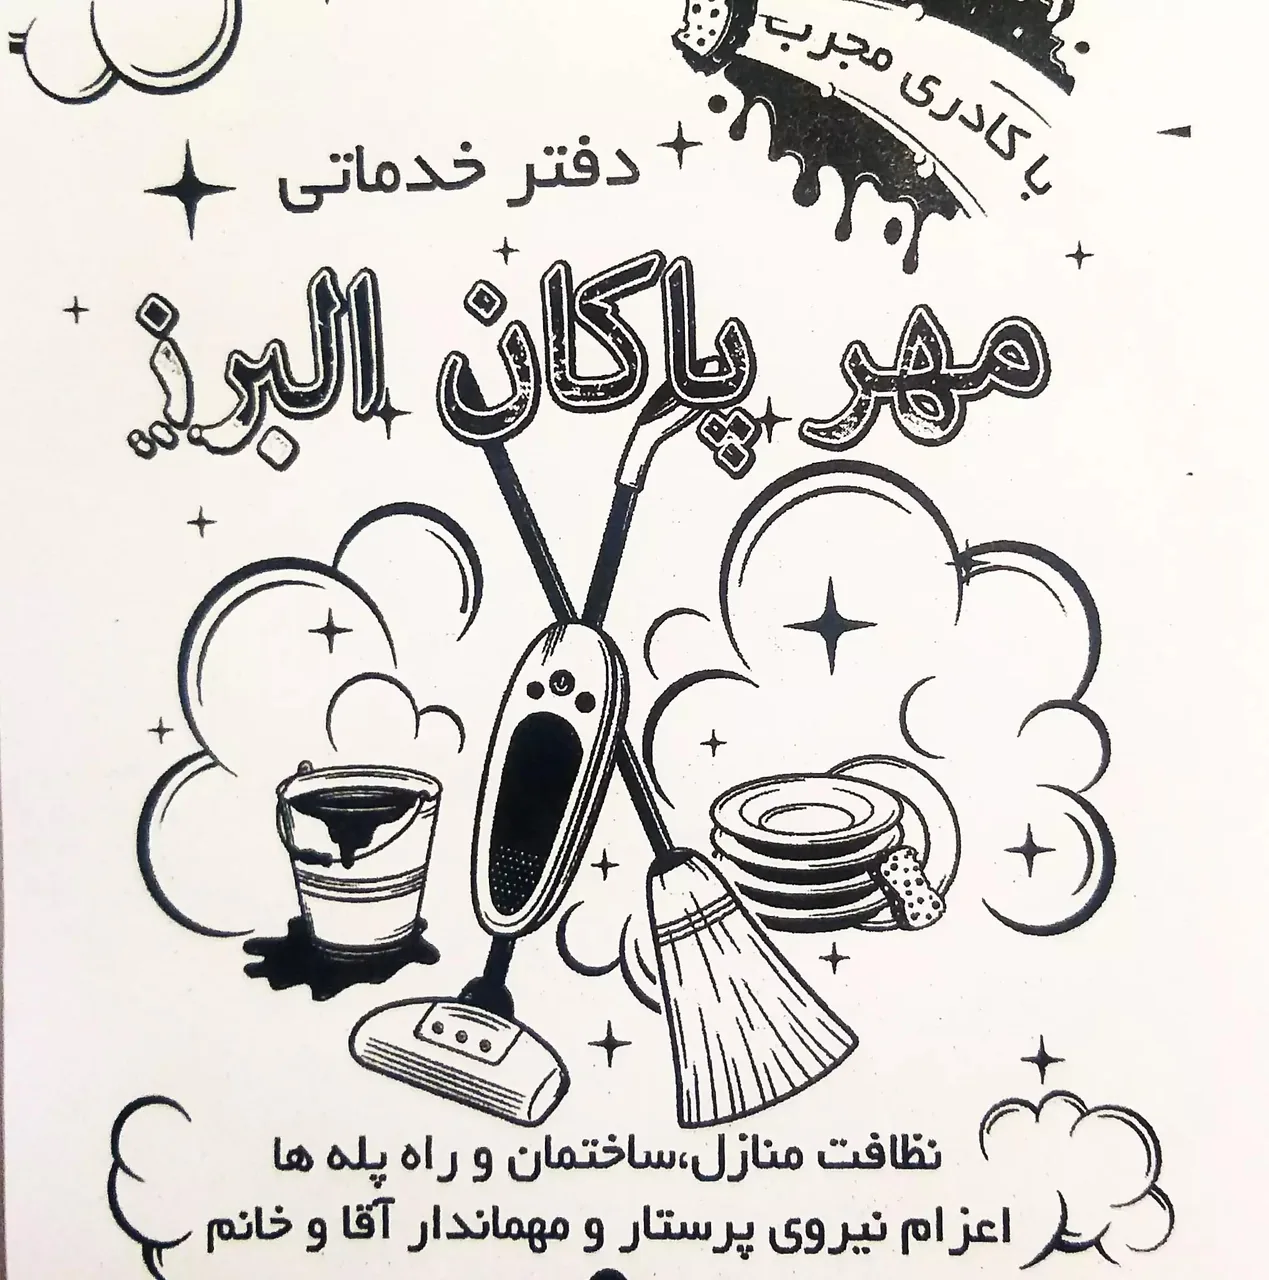 با کادری مجرب
دفتر خدماتی
مهر پاکان البرز
نظافت منازل،ساختمان و راه پله ها
اعزام نیروی پرستار و مهماندار آقا و خانم